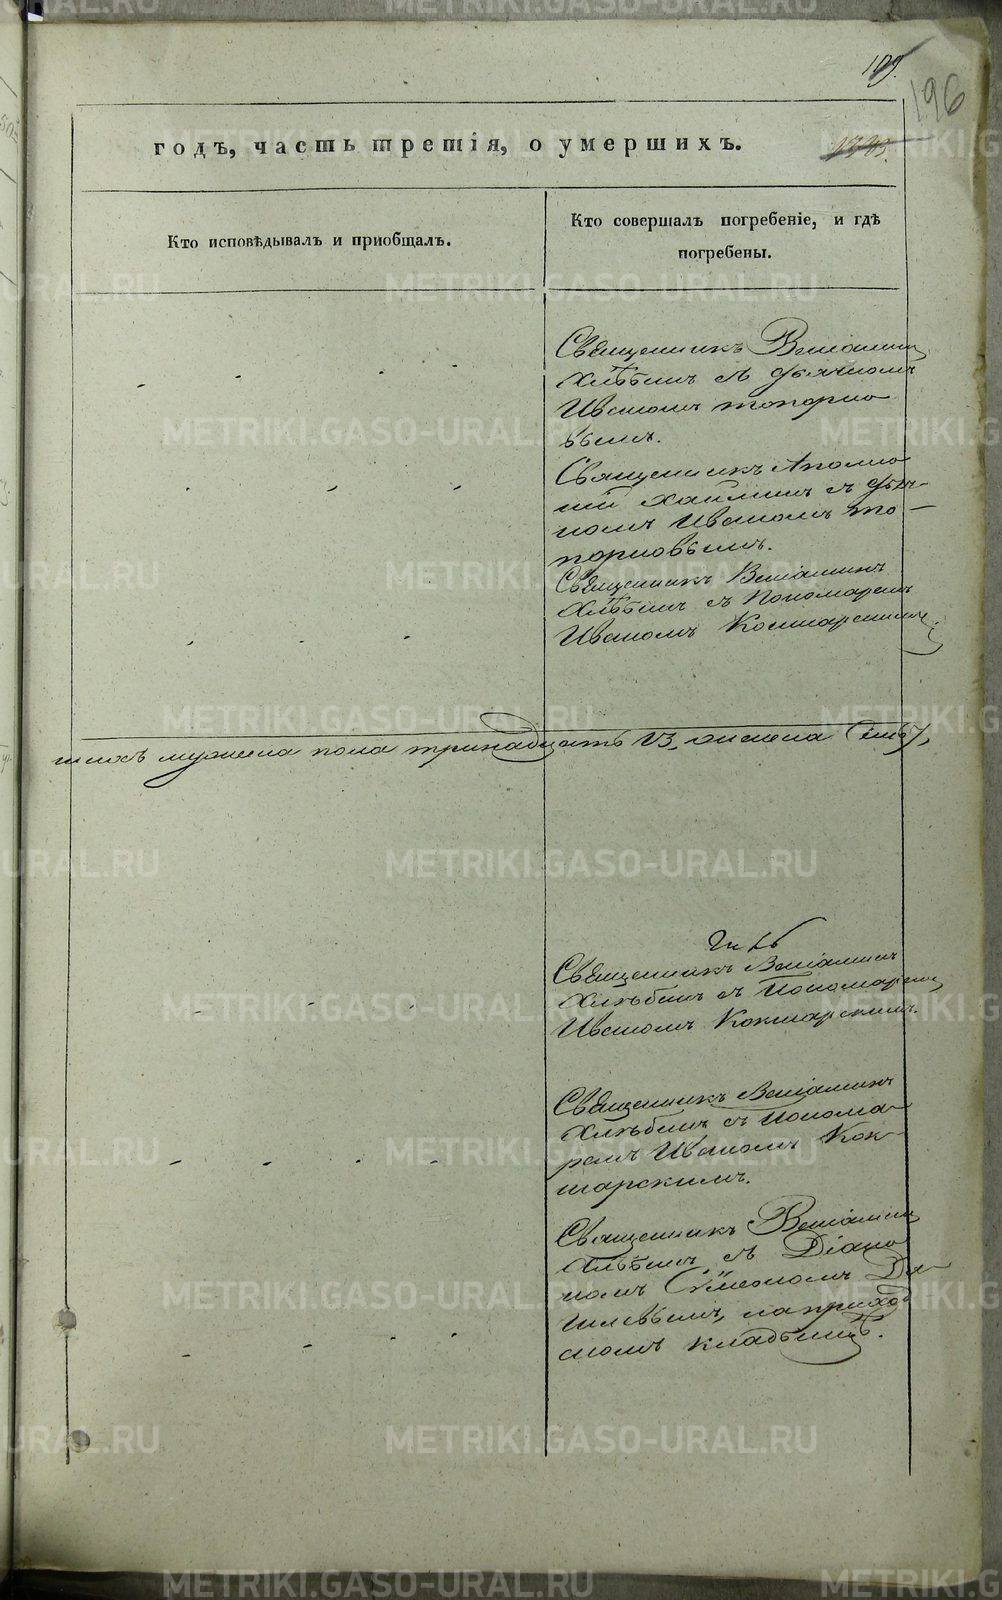 109.
196
годъ, часть третія, о умершихъ.
Кто исповѣдывалъ и пріобщалъ.
Кто совершалъ погребеніе, и гдѣ
погребены.
Священникъ Веніаминъ
Хлѣбинъ съ дьячкомъ
Иваномъ топорко
вымъ.
Священникъ Аполло
ній съ дьяч-
комъ Иваномъ то-
порковымъ.
Священникъ Веніаминъ
Хлѣбинъ съ Пономаремъ
Иваномъ Кокшарскимъ
мужеска пола тринадцать 13, женска Семь 7,
Священникъ Веніаминъ
Хлѣбинъ съ Пономаремъ
Иваномъ Кокшарскимъ.
Священникъ Веніаминъ
Хлѣбинъ съ Понома-
ремъ Иваномъ Кок-
шарскимъ.
Священникъ Веніаминъ
Хлѣбинъ съ Діако
номъ Сѵмеономъ
на приход
скомъ кладбищѣ.
METRIKI.GASO-URAL.RU